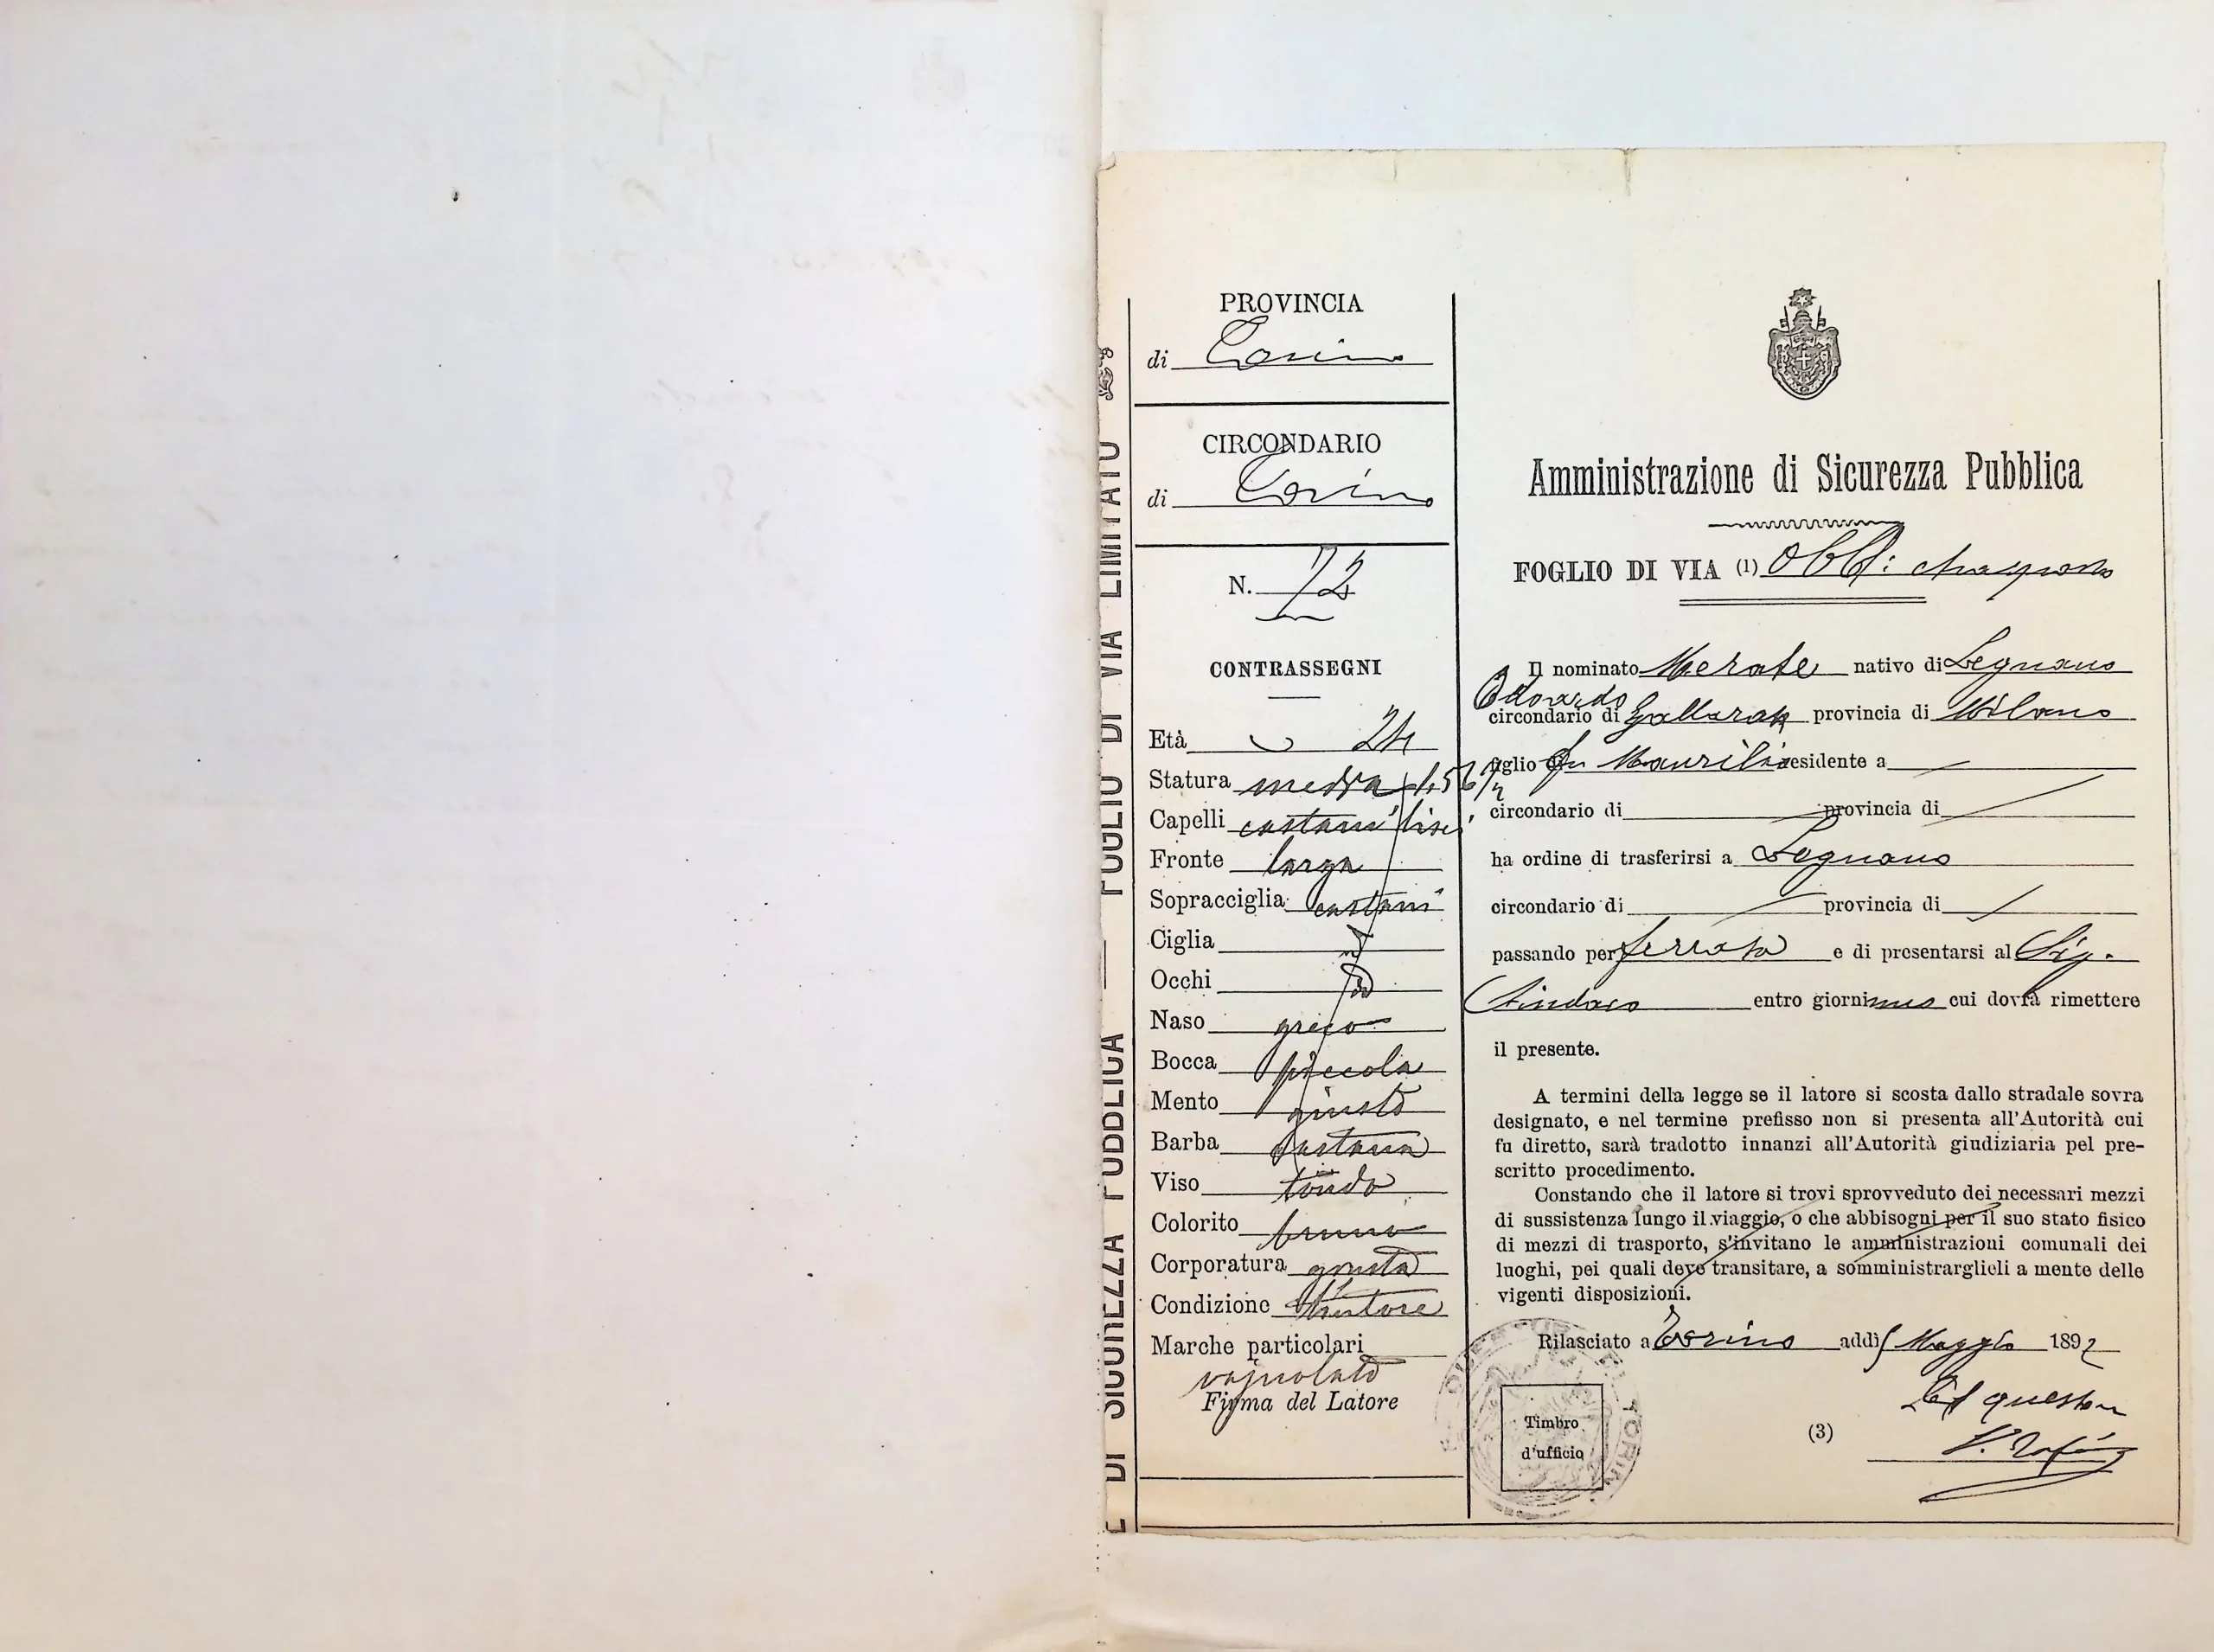 E DI SICUREZZA PUBBLICA — FOGLIO DI VIA LIMITATO
PROVINCIA
di Torino
CIRCONDARIO
di Torino
N. 72
CONTRASSEGNI
Età 24
Statura media 1,56 1/2
Capelli castani lisci
Fronte larga
Sopracciglia castani
Ciglia
Occhi
Naso greco
Bocca piccola
Mento giusto
Barba castana
Viso tondo
Colorito bruno
Corporatura giusta
Condizione Pintore
Marche particolari
vajuolato
Firma del Latore
Amministrazione di Sicurezza Pubblica
FOGLIO DI VIA (1) Obbl:
Il nominato Merate nativo di Legnano
Edoardo
circondario di Gallarate provincia di Milano
figlio fu Maurilio residente a
circondario di provincia di
ha ordine di trasferirsi a Legnano
circondario di provincia di
passando per ferrata e di presentarsi al Sig.
Sindaco entro giorni uno cui dovrà rimettere
il presente.
A termini della legge se il latore si scosta dallo stradale sovra
designato, e nel termine prefisso non si presenta all'Autorità cui
fu diretto, sarà tradotto innanzi all'Autorità giudiziaria pel pre-
scritto procedimento.
Constando che il latore si trovi sprovveduto dei necessari mezzi
di sussistenza lungo il viaggio, o che abbisogni per il suo stato fisico
di mezzi di trasporto, s'invitano le amministrazioni comunali dei
luoghi, pei quali deve transitare, a somministrarglieli a mente delle
vigenti disposizioni.
Rilasciato a Torino addì 5 Maggio 1892
Timbro
d'ufficio
TORINO
(3)
questore